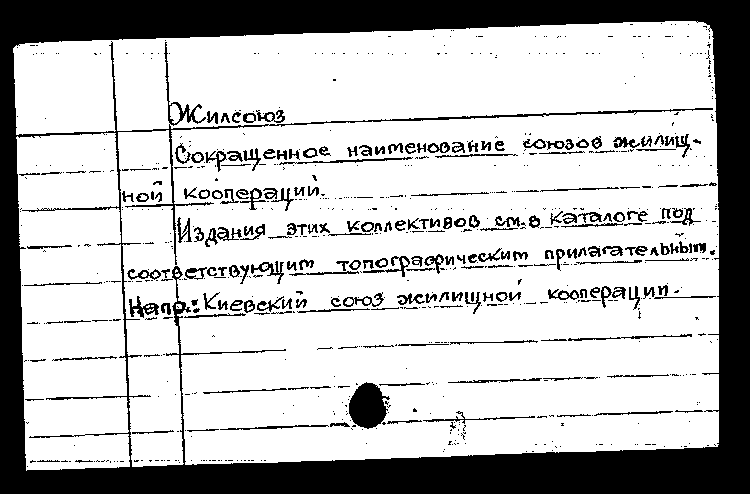 Жилсоюз
Сокращенное наименование союзов жилищ-
ной коопераций.
Издания этих коллективов см. в каталоге под
соответствующим топографическим прилагательным.
Напр.: Киевский союз жилищной кооперации.